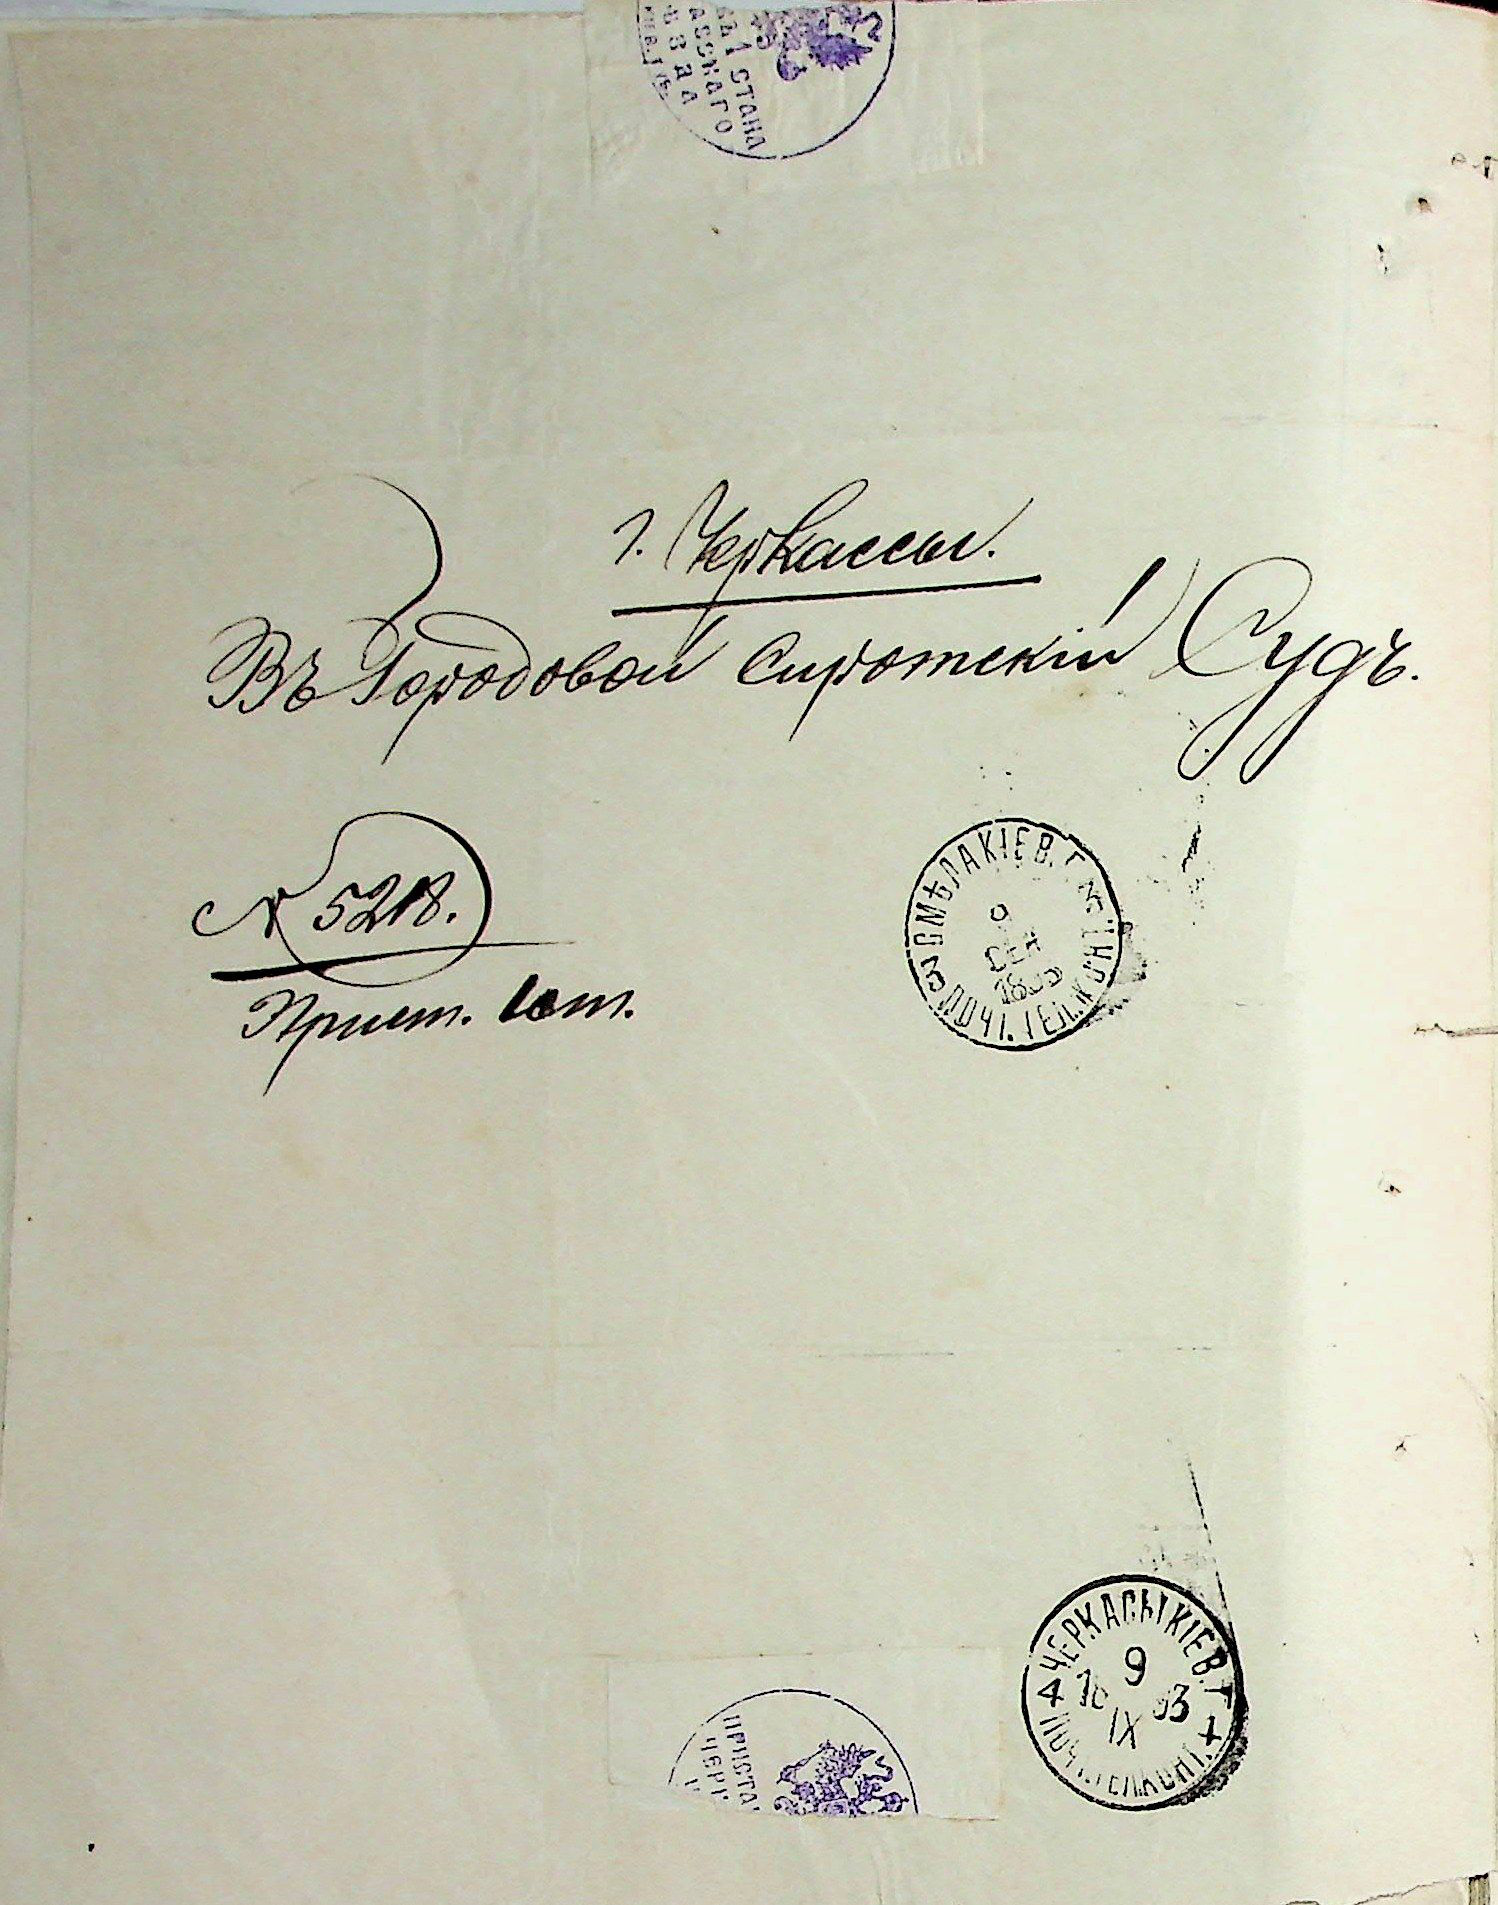 1 СТАНА
г. Черкассы.
Въ Городовой Сиротскій Судъ.
N 5218.
Прист. 1 ст.
3 СМѢЛА КІЕВ. Г. 3
9
СЕН
189
ПОЧ. ТЕЛ. КОН.
4 ЧЕРКАСЫ КІЕВ. Г.
9
IX
ПОЧ. ТЕЛ. КОНТ.
ПРИСТА
ЧЕР